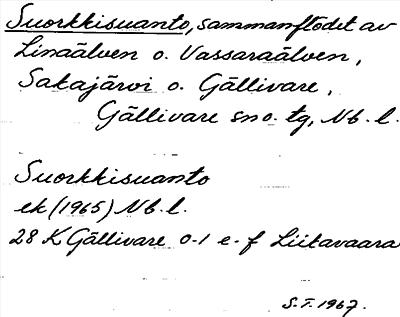 Suorkkisuanto, sammanflödet av
Linaälven o. Vassaraälven,
Sakajärvi o. Gällivare,
Gällivare sn o. tg, Nb. l.
Suorkkisuanto
ek (1965) Nb. l.
28 K Gällivare 0-1 e-f Liitavaara
S.T. 1967.